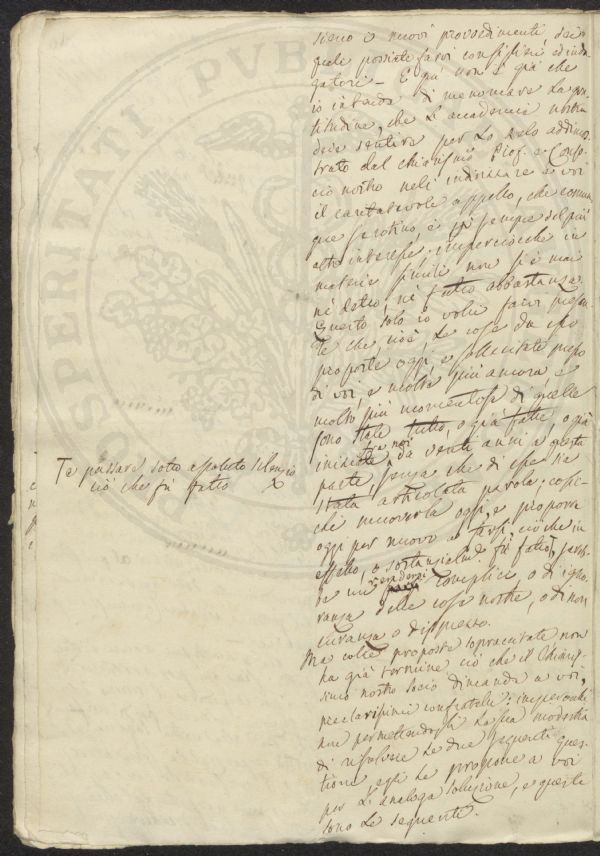 sieno e nuovi provvedimenti, dei
quali possiate farvi consiglieri ed inda-
gatori – E qui non è già che
io intenda di menomare la gra-
titudine, che l'accademia nostra
deve sentire per lo zelo addimo-
strato dal chiarissimo Prof. e
cio nostro nell' indirizzare a voi
il caritatevole appello, che comun-
que serotino, è pur sempre del più
alto interesse. imperciocchè in
materie simili non si è mai
nè detto, nè fatto abbastanza.
Questo solo io volli farvi presen-
te che, cioè, le cose da esso
proposte oggi, e sollecitate presso
di voi, e molte più ancora, e
molto più momentose di quelle
sono state tutte, o già fatte, o già
iniziate tra noi da venti anni a questa
parte, senza che di esse sia
stata articolata parola; cosic-
chè muoverla oggi, e proporre
oggi per nuovo a farsi, ciò che in
effetto, o sostanzialmente fù fatto, sareb-
be un renderci complici, o di igno-
ranza delle cose nostre, o di non
curanza o disprezzo.
Te passare sotto assoluto silenzio
ciò che fù fatto X
Ma colle proposte sopracitate non
ha già termine ciò che il Chiaris-
simo nostro socio dimanda a voi,
preclarissimi confratelli: imperocchè
non permettendogli la sua modestia
di risolvere le due seguenti ques-
tioni, egli le propone a voi
per l'analoga soluzione, e queste
sono le seguenti.
PROSPERITATI PVB